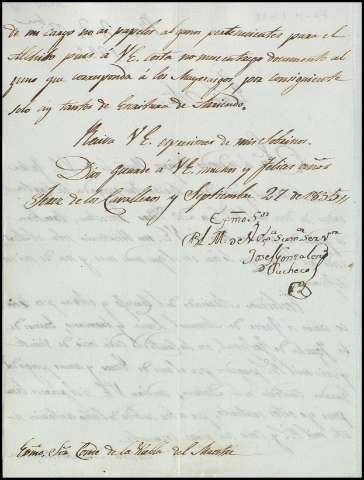 de mi cargo no ai papeles algunos pertenecientes para el
Archivo pues á V.E. costa no me entrego documento al
guno que corresponda á los Mayorazgos, por consiguiente
solo ay tantos de Escritura de Arriendo.
Reciva V.E. espresiones de mis Sobrinos.
Dios guarde á V.E. muchos y felices años
Jerez de los Cavalleros y Septiembre 27 de 1835
Exmo. Sor
B.L.M. de V.E. su Ser.
Josef Gonzalez
Pacheco
Exmo. Sor Conde de la Puebla del Maestre